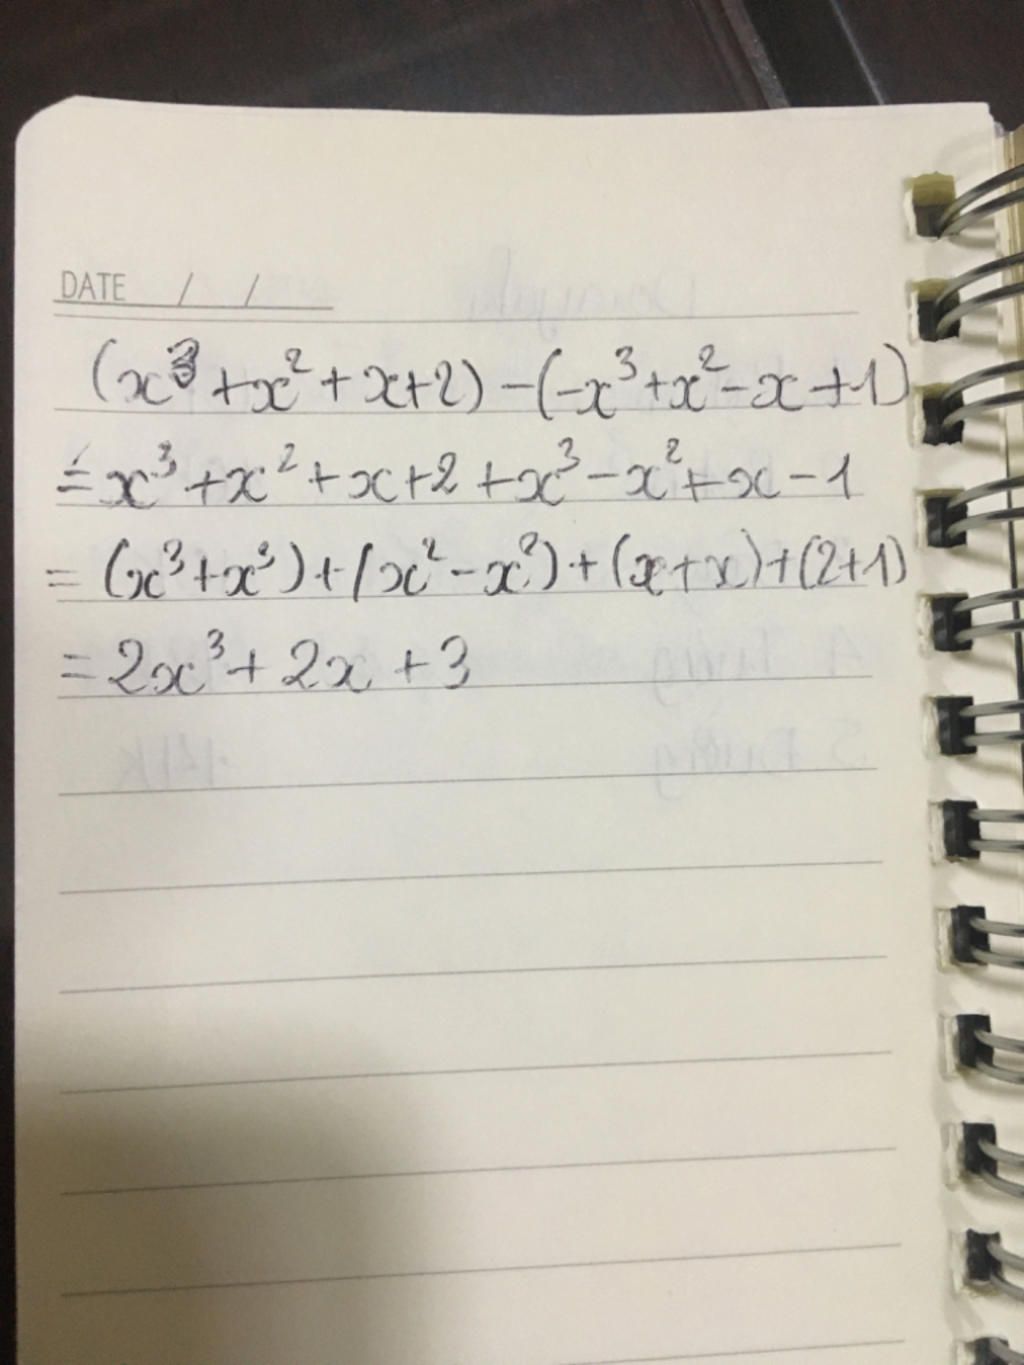 DATE / /
(x³ + x² + x + 2) - (-x³ + x² - x + 1)
= x³ + x² + x + 2 + x³ - x² + x - 1
= (x³ + x³) + (x² - x²) + (x + x) + (2 + 1)
= 2x³ + 2x + 3